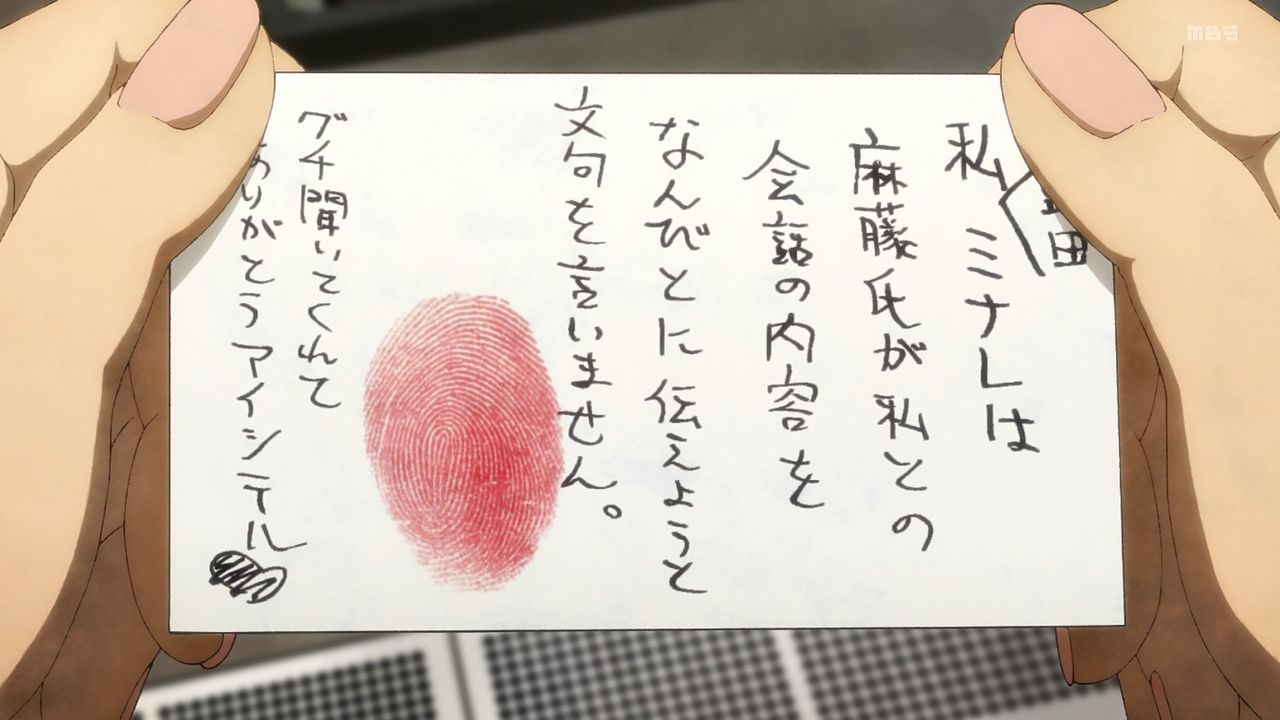 私 ミナレは
田
麻藤氏が私との
会話の内容を
なんびとに伝えようと
文句を言いません。
グチ聞いてくれて
ありがとうアイシテル
MBS